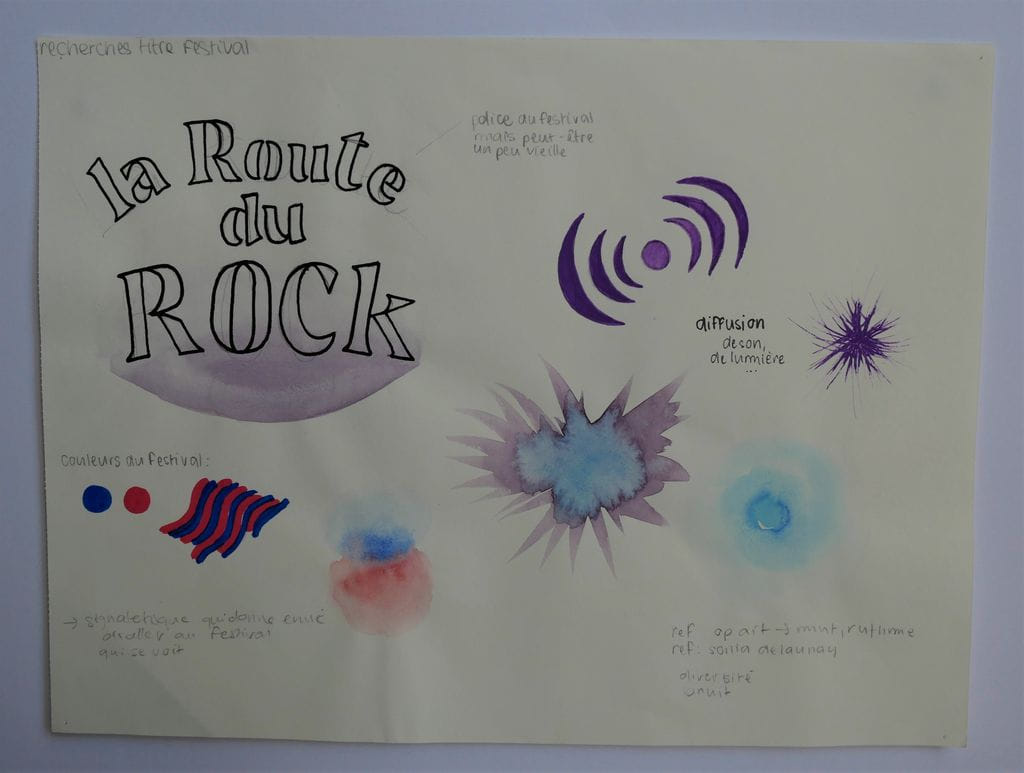 recherches titre festival
la Route
du
ROCk
police du festival
mais peut-être
un peu vieille
diffusion
de son,
de lumière
...
couleurs du festival:
→ signaletique qui donne envie
d'aller au festival
qui se voit
ref op art → mvnt, rythme
ref: sonia delaunay
diversité
bruit